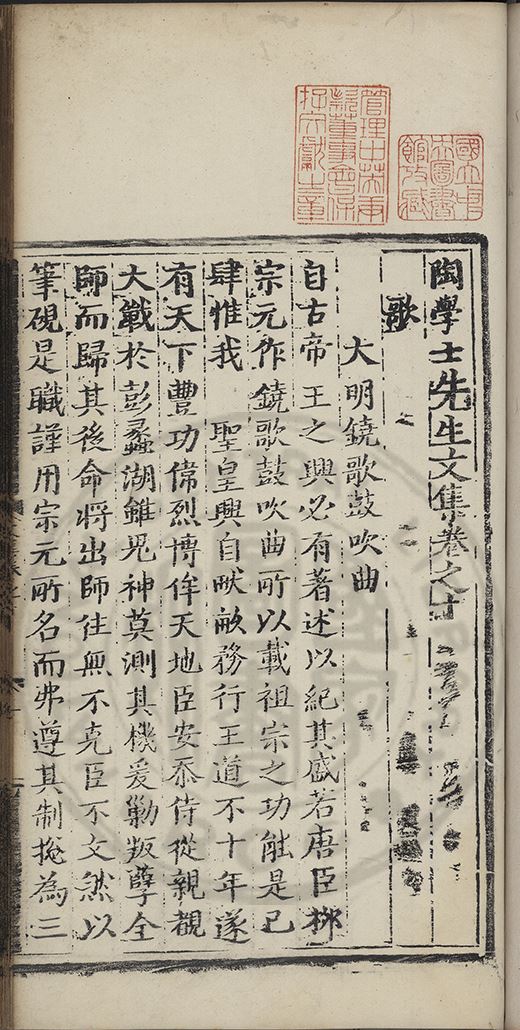 陶學士先生文集卷之十
歌
大明鐃歌鼓吹曲
自古帝王之興必有著述以紀其盛若唐臣栁
宗元作鐃歌鼓吹曲所以載祖宗之功能是已
肆惟我 聖皇興自畎畝務行王道不十年遂
有天下豐功偉烈博侔天地臣安忝侍從親覩
大戰於彭蠡湖雖鬼神莫測其機爰勦叛孽全
師而歸其後命將出師徃無不克臣不文然以
筆硯是職謹用宗元所名而弗遵其制揔為三
國立中央圖書館攷藏
管理中英庚款董事會保存文獻之章